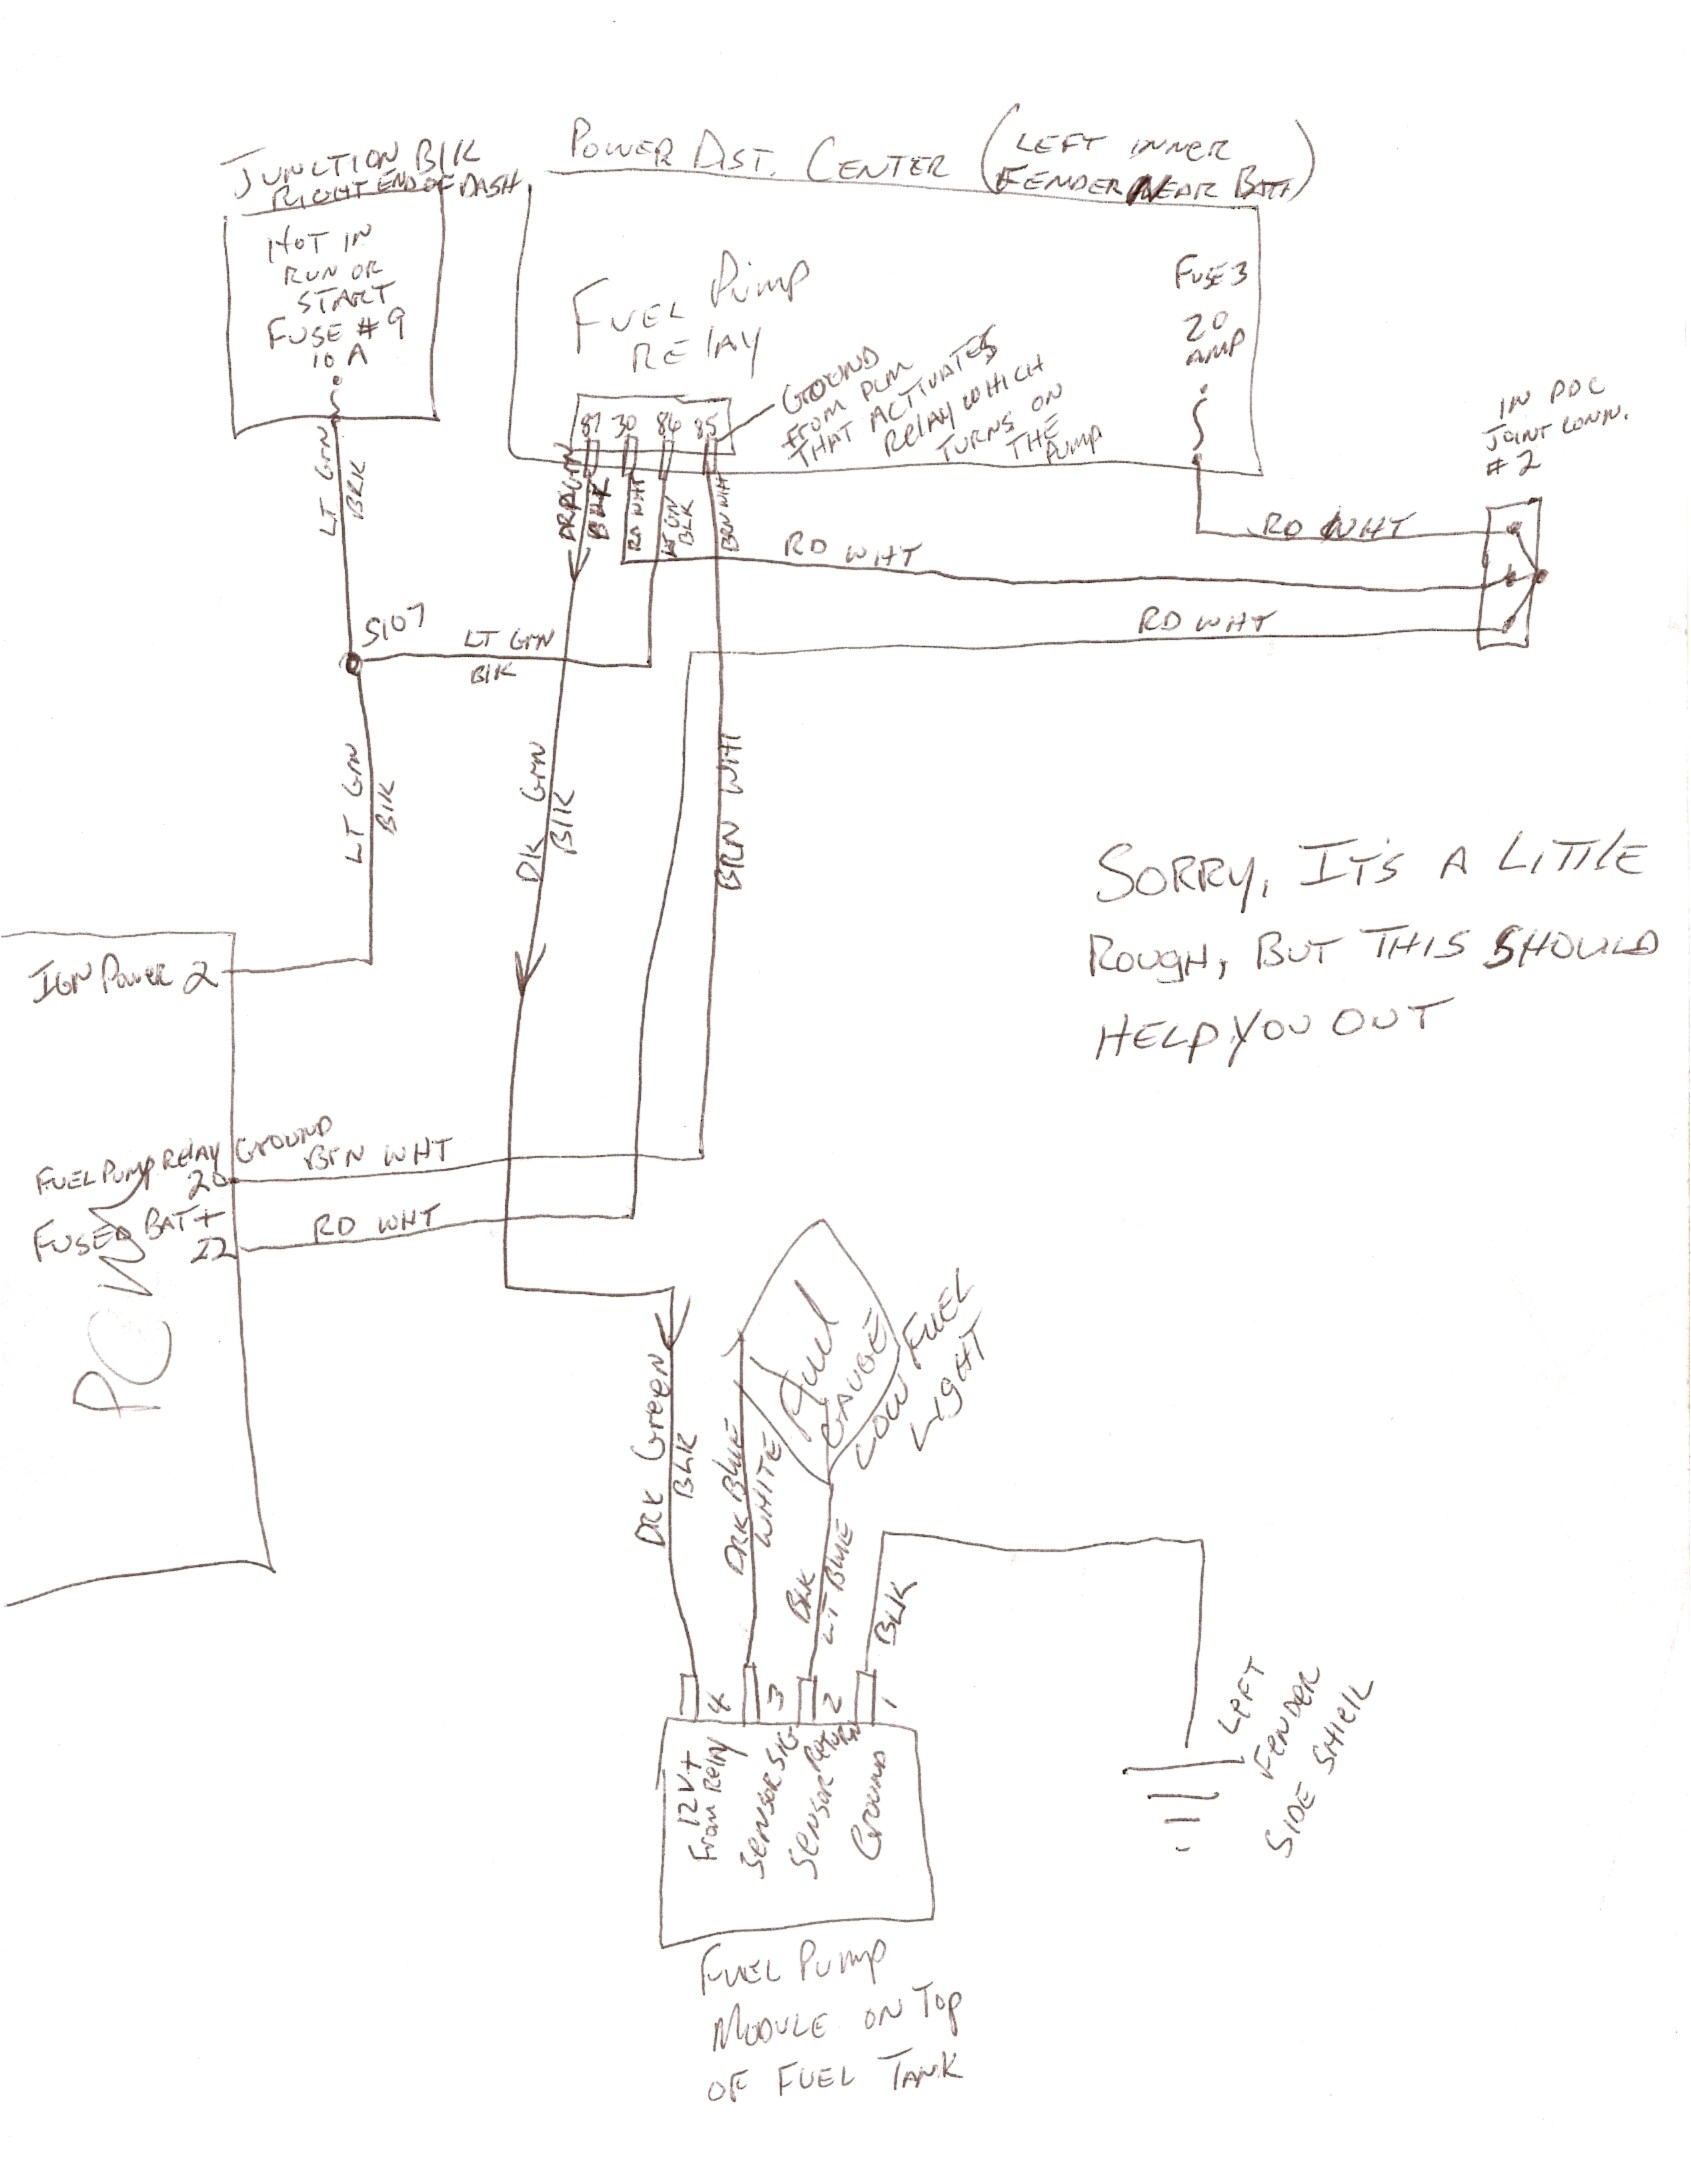 JUNCTION BlK
RIGHT END OF DASH
POWER DIST. CENTER (LEFT INNER
FENDER NEAR BATT)
HOT IN
RUN OR
START
FUSE #9
10 A
FUEL PUMP
RELAY
FUSE 3
20
AMP
GROUND
FROM PCM
THAT ACTIVATES
RELAY WHICH
TURNS ON
THE
PUMP
IN PDC
JOINT CONN.
#2
87 30 86 85
DRK GRN
BLK
RD WHT
LT GN
BLK
BRN WHT
LT GRN
BRK
RD WHT
RD WHT
RD WHT
S107
LT GRN
BlK
LT GRN
BlK
DK GRN
BlK
BRN WHT
SORRY, IT'S A LITTlE
ROUGH, BUT THIS SHOULD
HELP YOU OUT
IGN POWER 2
FUEL PUMP RELAY GROUND
20
BRN WHT
FUSED BAT +
22
RD WHT
PCM
Fuel
GAUGE
LOW FUEL
LIGHT
DRK GreeN
BLK
DRK BluE
WHITE
BLK
LT BlUE
BLK
4 3 2 1
12V+
From Relay
SENSOR SIG
SENSOR RETURN
GROUND
LEFT
FENDER
SIDE SHIElL
FUEL PUMP
MODULE ON TOP
OF FUEL TANK